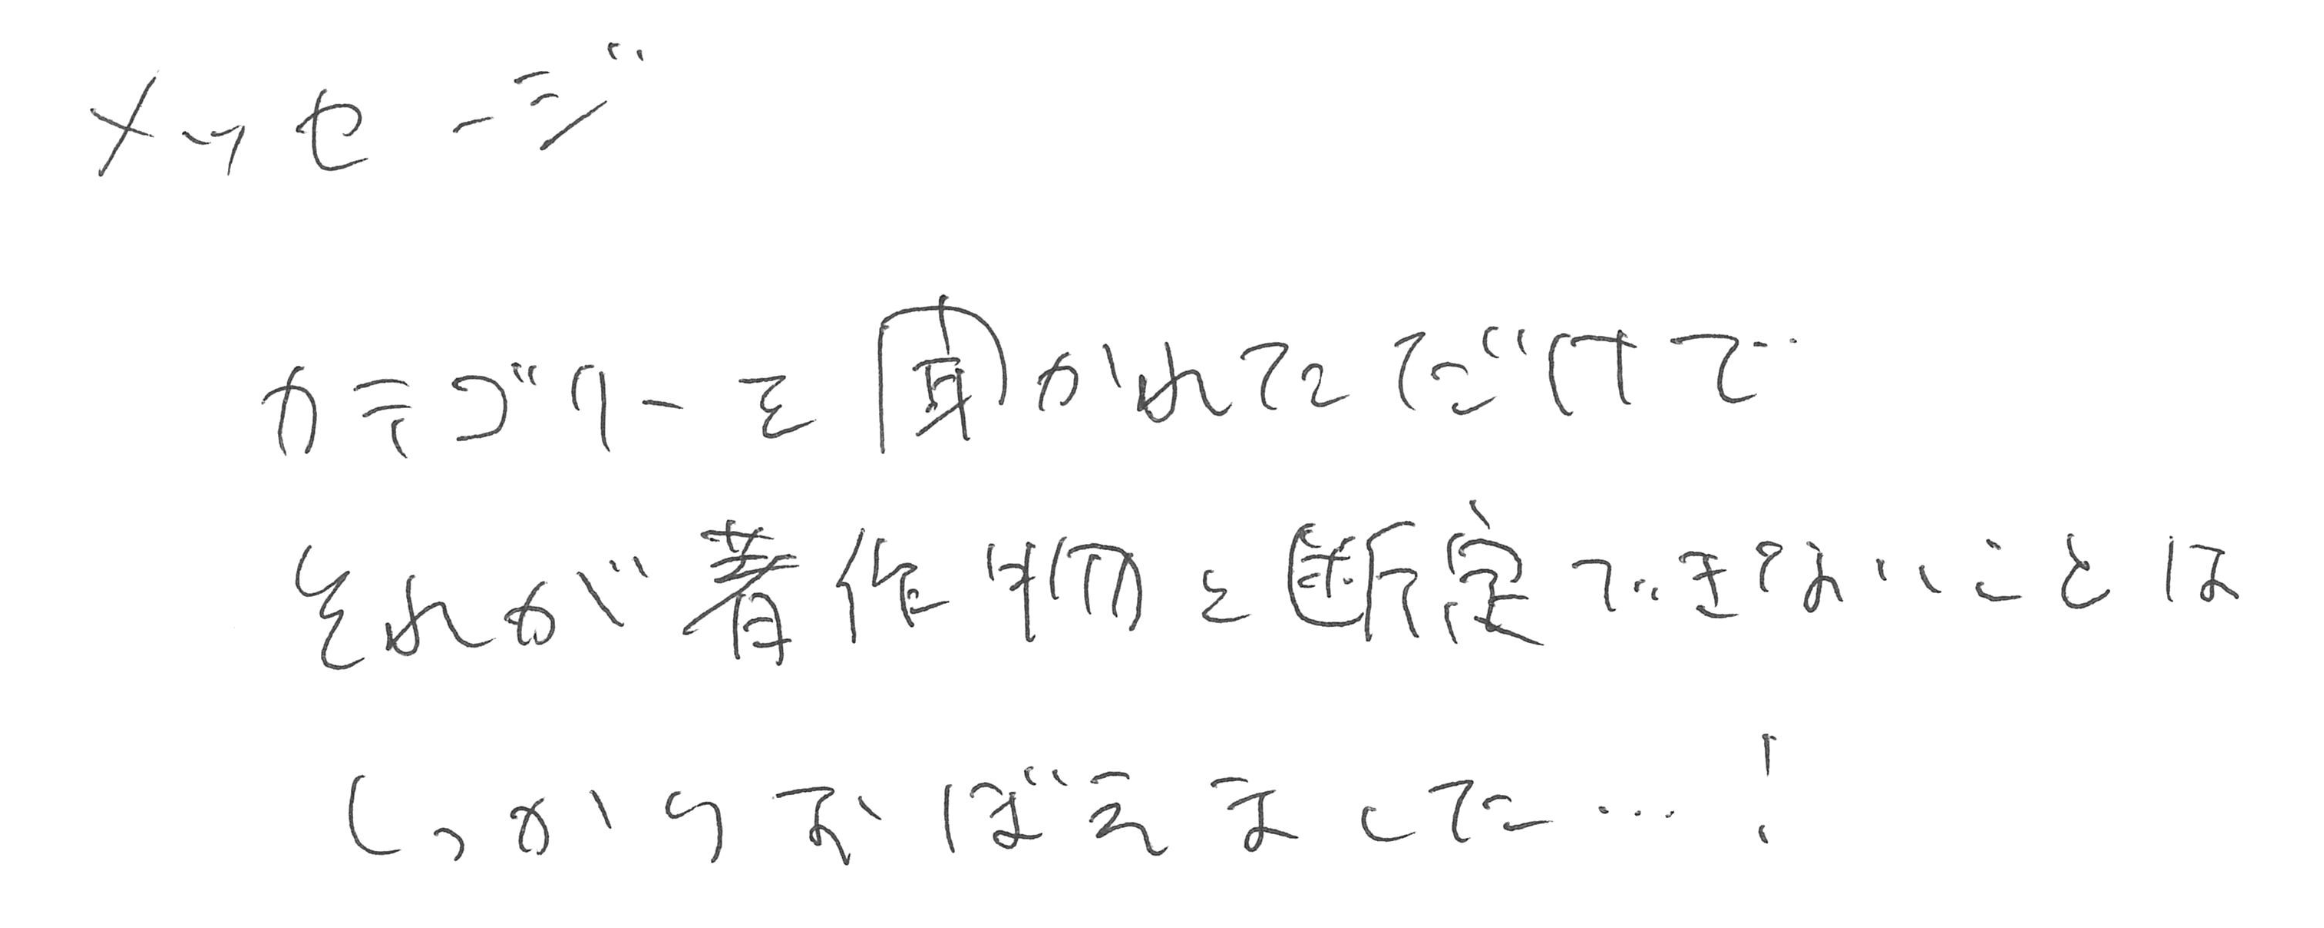 メッセージ
カテゴリーを聞かれただけで
それが著作物と断定できないことは
しっかりおぼえました…!